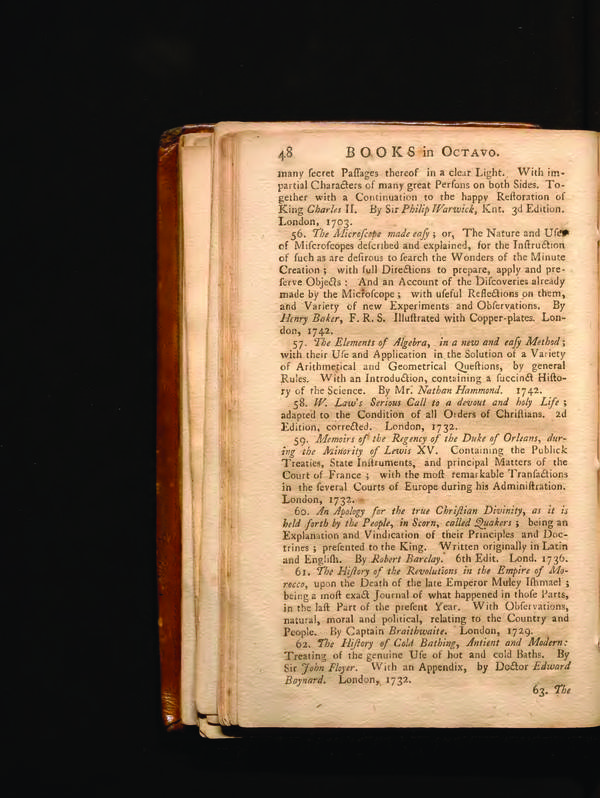 48 BOOKS in OCTAVO.
many ſecret Paſſages thereof in a clear Light. With im-
partial Characters of many great Perſons on both Sides. To-
gether with a Continuation to the happy Reſtoration of
King Charles II. By Sir Philip Warwick, Knt. 3d Edition.
London, 1703.
56. The Microſcope made eaſy; or, The Nature and Uſe
of Miſcroſcopes deſcribed and explained, for the Inſtruction
of ſuch as are deſirous to ſearch the Wonders of the Minute
Creation; with full Directions to prepare, apply and pre-
ſerve Objects: And an Account of the Diſcoveries already
made by the Microſcope; with uſeful Reflections on them,
and Variety of new Experiments and Obſervations. By
Henry Baker, F. R. S. Illuſtrated with Copper-plates. Lon-
don, 1742.
57. The Elements of Algebra, in a new and eaſy Method;
with their Uſe and Application in the Solution of a Variety
of Arithmetical and Geometrical Queſtions, by general
Rules. With an Introduction, containing a ſuccinct Hiſto-
ry of the Science. By Mr. Nathan Hammond. 1742.
58. W. Law's Serious Call to a devout and holy Life;
adapted to the Condition of all Orders of Chriſtians. 2d
Edition, corrected. London, 1732.
59. Memoirs of the Regency of the Duke of Orleans, dur-
ing the Minority of Lewis XV. Containing the Publick
Treaties, State Inſtruments, and principal Matters of the
Court of France; with the moſt remarkable Tranſactions
in the ſeveral Courts of Europe during his Adminiſtration.
London, 1732.
60. An Apology for the true Chriſtian Divinity, as it is
held forth by the People, in Scorn, called Quakers; being an
Explanation and Vindication of their Principles and Doc-
trines; preſented to the King. Written originally in Latin
and Engliſh. By Robert Barclay. 6th Edit. Lond. 1736.
61. The Hiſtory of the Revolutions in the Empire of Mo-
rocco, upon the Death of the late Emperor Muley Iſhmael;
being a moſt exact Journal of what happened in thoſe Parts,
in the laſt Part of the preſent Year. With Obſervations,
natural, moral and political, relating to the Country and
People. By Captain Braithwaite. London, 1729.
62. The Hiſtory of Cold Bathing, Antient and Modern:
Treating of the genuine Uſe of hot and cold Baths. By
Sir John Floyer. With an Appendix, by Doctor Edward
Baynard. London, 1732.
63. The